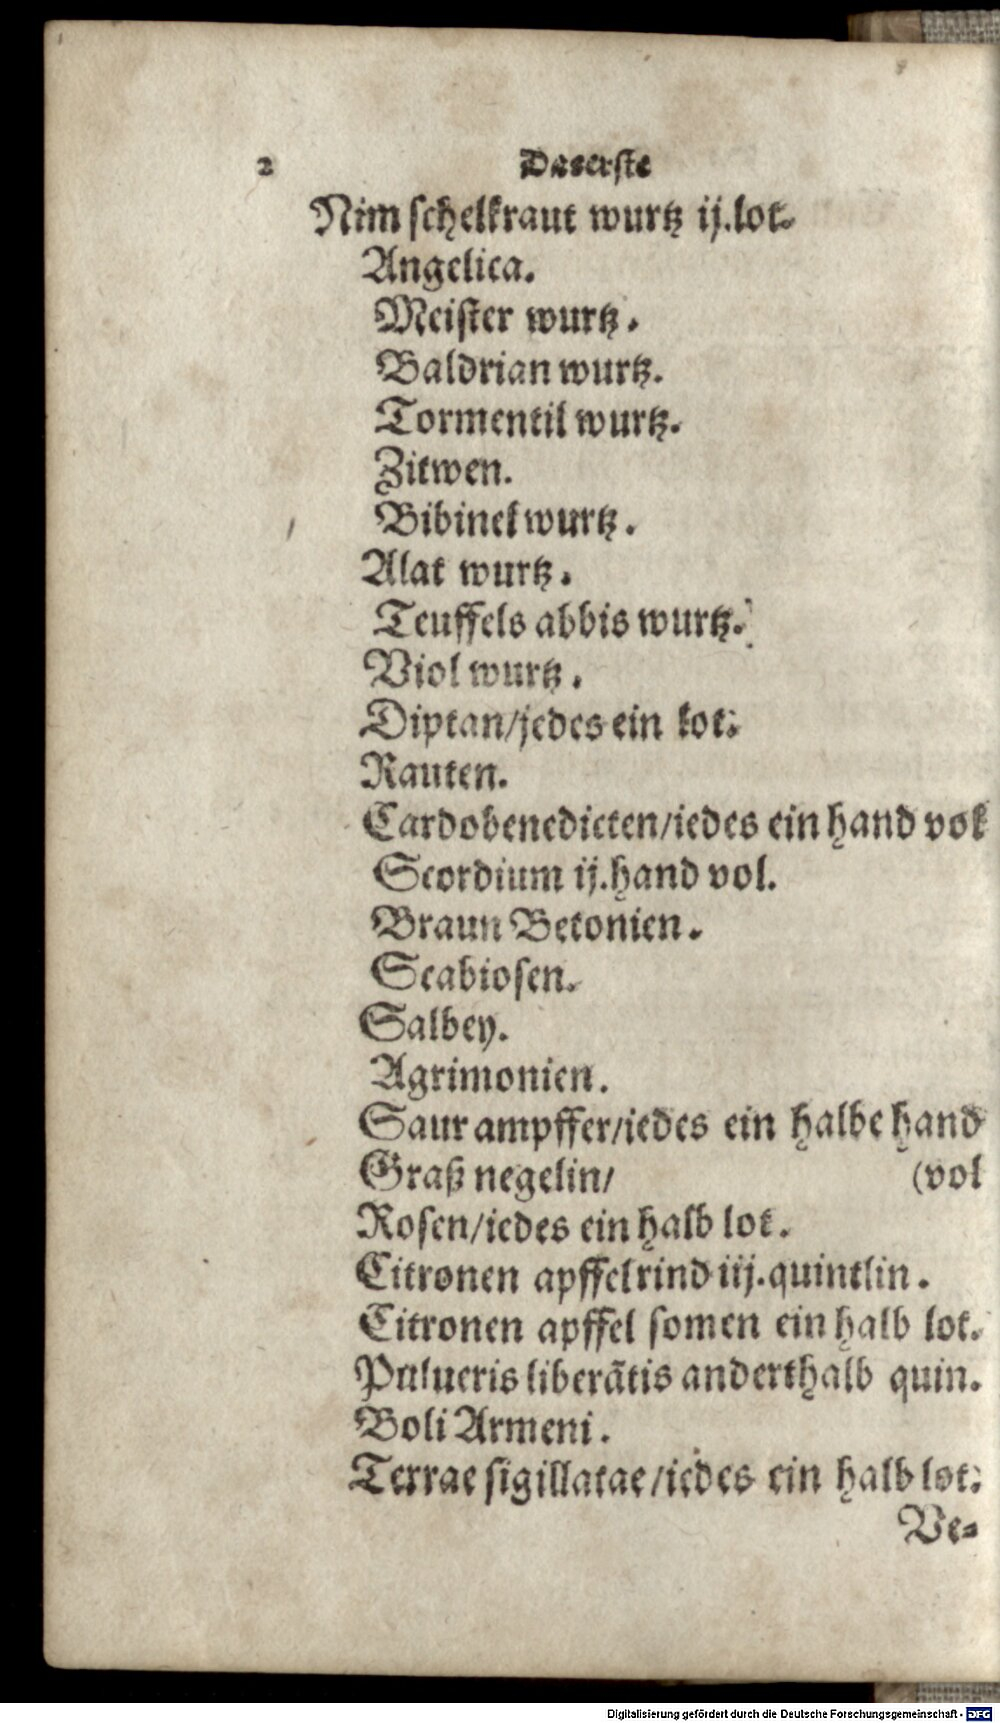 2 Das erste
Nim schelkraut wurtz ij.lot.
Angelica.
Meister wurtz.
Baldrian wurtz.
Tormentil wurtz.
Zitwen.
Bibinel wurtz.
Alat wurtz.
Teuffels abbis wurtz.
Viol wurtz.
Diptan/jedes ein lot.
Rauten.
Cardobenedicten/iedes ein hand vol
Scordium ij.hand vol.
Braun Betonien.
Scabiosen.
Salbey.
Agrimonien.
Saur ampffer/iedes ein halbe hand
Graß negelin/ (vol
Rosen/iedes ein halb lot.
Citronen apffelrind iij.quintlin.
Citronen apffel somen ein halb lot.
Pulueris liberãtis anderthalb quin.
Boli Armeni.
Terrae sigillatae/iedes ein halb lot.
Ve-
Digitalisierung gefördert durch die Deutsche Forschungsgemeinschaft - DFG